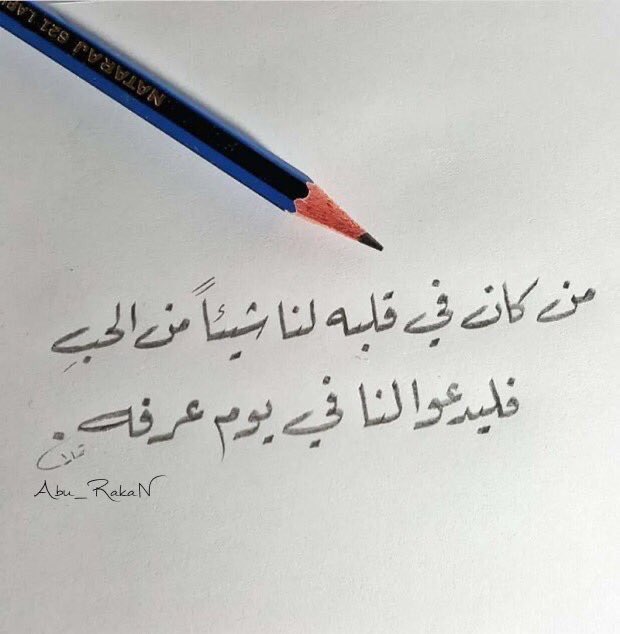 NATARAJ 621
من كان في قلبه لنا شيئاً من الحبِ
فليدعوا لنا في يوم عرفه .
Abu_RakaN